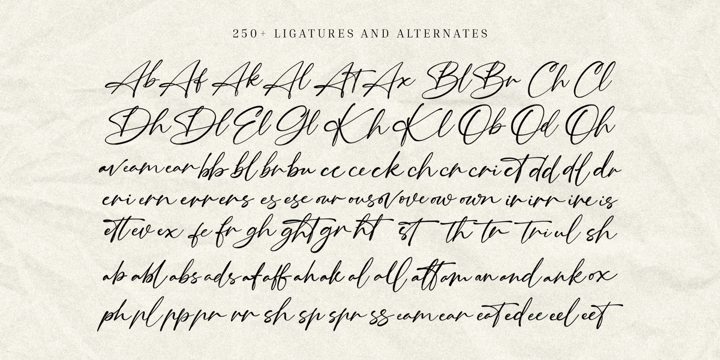 250+ LIGATURES AND ALTERNATES
Ab Af Ak Al At Ax Bl Br Ch Cl
Dh Dl El Gl Kh Kl Ob Od Oh
av eam ear bb bl br bu cc ce ck ch cr cri ct dd dl dr
eri ern err ers es ese our ous ov ove ow own ir irr ire is
ett ev ex fe fr gh ght gr ht st th tr tri ul sh
ab abl abs ads af aff ah ak al all att om an and ank ox
ph pl pp pr rr sh sp spr ss eam ear eat ed ee eel eet